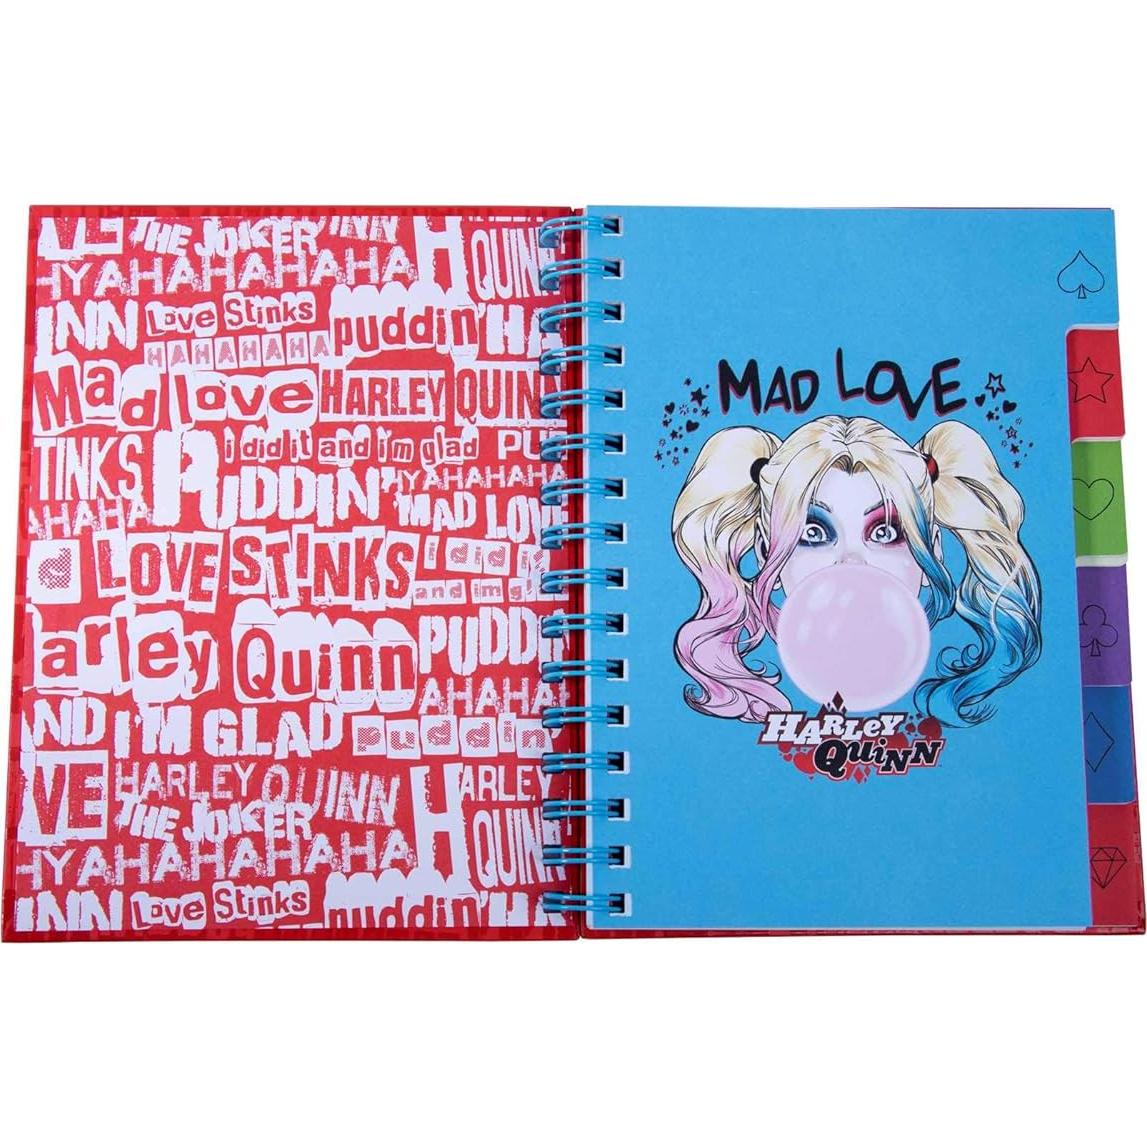 VE THE JOKER INN
HYAHAHAHAHAHA H QUINN
INN Love Stinks puddin' HA
HAHAHAHA
Mad love HARLEY QUIN
TINKS i did it and i'm glad PU
PUDDIN' HYAHAHAHA
AHAHA MAD LOV
d LOVE STINKS i did i
and im g
arley Quinn PUDD
AHAHA
AND I'M GLAD puddin
VE HARLEY QUINN HARLEY
THE JOKER
HYAHAHAHAHAHA H QUINN
INN Love Stinks puddin' HA
MAD LOVE
HARLEY
QUINN